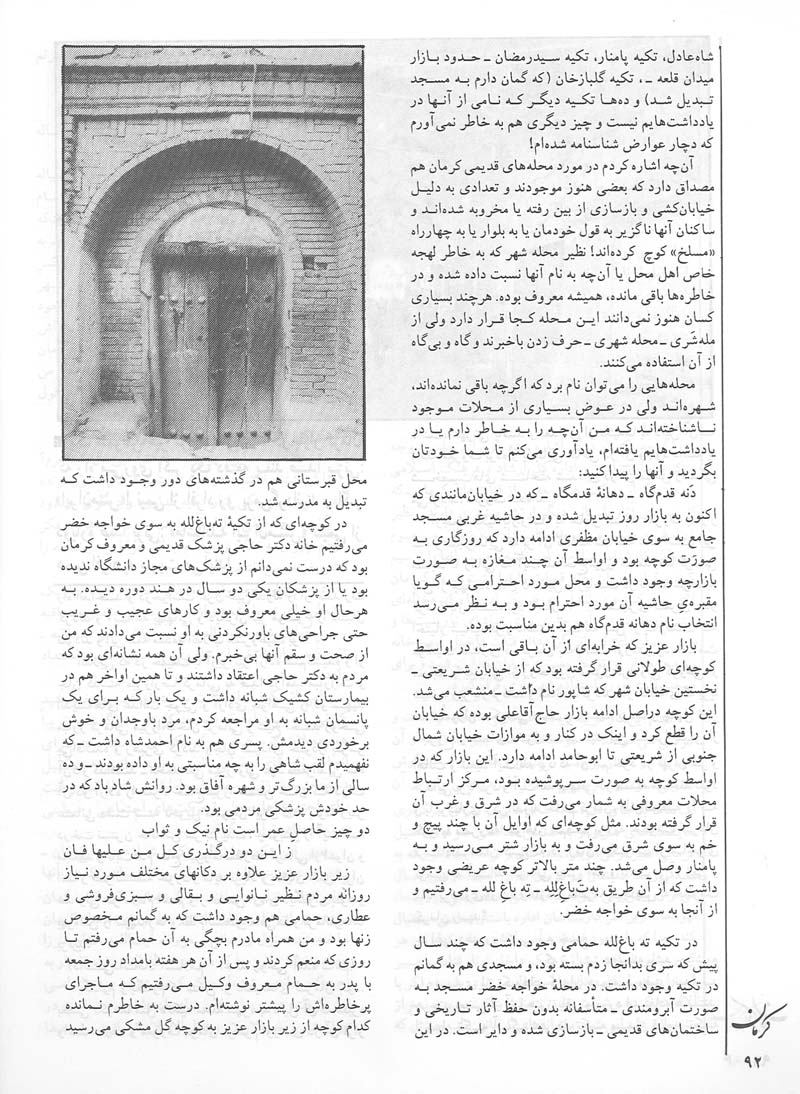 شاه‌عادل، تکیه پامنار، تکیه سیدرمضان ـ حدود بازار
میدان قلعه ـ، تکیه گلبازخان (که گمان دارم به مسجد
تبدیل شد) و ده‌ها تکیه دیگر که نامی از آنها در
یادداشت‌هایم نیست و چیز دیگری هم به خاطر نمی‌آورم
که دچار عوارض شناسنامه شده‌ام!
آن‌چه اشاره کردم در مورد محله‌های قدیمی کرمان هم
مصداق دارد که بعضی هنوز موجودند و تعدادی به دلیل
خیابان‌کشی و بازسازی از بین رفته یا مخروبه شده‌اند و
ساکنان آنها ناگزیر به قول خودمان یا به بلوار یا به چهارراه
«مسلخ» کوچ کرده‌اند! نظیر محله شهر که به خاطر لهجه
خاص اهل محل یا آن‌چه به نام آنها نسبت داده شده و در
خاطره‌ها باقی مانده، همیشه معروف بوده. هرچند بسیاری
کسان هنوز نمی‌دانند این محله کجا قرار دارد ولی از
مله‌شَری ـ محله شهری ـ حرف زدن باخبرند و گاه و بی‌گاه
از آن استفاده می‌کنند.
محله‌هایی را می‌توان نام برد که اگرچه باقی نمانده‌اند،
شهره‌اند ولی در عوض بسیاری از محلات موجود
ناشناخته‌اند که من آن‌چه را به خاطر دارم یا در
یادداشت‌هایم یافته‌ام، یادآوری می‌کنم تا شما خودتان
بگردید و آنها را پیدا کنید:
دَنه قدم‌گاه ـ دهانهٔ قدمگاه ـ که در خیابان‌مانندی که
اکنون به بازار روز تبدیل شده و در حاشیه غربی مسجد
جامع به سوی خیابان مظفری ادامه دارد که روزگاری به
صورت کوچه بود و اواسط آن چند مغازه به صورت
بازارچه وجود داشت و محل مورد احترامی که گویا
مقبره‌ی حاشیه آن مورد احترام بود و به نظر می‌رسد
انتخاب نام دهانه قدم‌گاه هم بدین مناسبت بوده.
بازار عزیز که خرابه‌ای از آن باقی است، در اواسط
کوچه‌ای طولانی قرار گرفته بود که از خیابان شریعتی ـ
نخستین خیابان شهر که شاپور نام داشت ـ منشعب می‌شد.
این کوچه دراصل ادامه بازار حاج‌آقاعلی بوده که خیابان
آن را قطع کرد و اینک در کنار و به موازات خیابان شمال
جنوبی از شریعتی تا ابوحامد ادامه دارد. این بازار که در
اواسط کوچه به صورت سرپوشیده بود، مرکز ارتباط
محلات معروفی به شمار می‌رفت که در شرق و غرب آن
قرار گرفته بودند. مثل کوچه‌ای که اوایل آن با چند پیچ و
خم به سوی شرق می‌رفت و به بازار شتر می‌رسید و به
پامنار وصل می‌شد. چند متر بالاتر کوچه عریضی وجود
داشت که از آن طریق به‌تَ‌باغِ‌لِله ـ تِه باغ لله ـ می‌رفتیم و
از آنجا به سوی خواجه خضر.
در تکیه ته باغ‌لله حمامی وجود داشت که چند سال
پیش که سری بدانجا زدم بسته بود، و مسجدی هم به گمانم
در تکیه وجود داشت. در محلهٔ خواجه خضر مسجد به
صورت آبرومندی ـ متأسفانه بدون حفظ آثار تاریخی و
ساختمان‌های قدیمی ـ بازسازی شده و دایر است. در این
محل قبرستانی هم در گذشته‌های دور وجود داشت که
تبدیل به مدرسه شد.
در کوچه‌ای که از تکیهٔ ته‌باغ‌لله به سوی خواجه خضر
می‌رفتیم خانه دکتر حاجی پزشک قدیمی و معروف کرمان
بود که درست نمی‌دانم از پزشک‌های مجاز دانشگاه ندیده
بود یا از پزشکان یکی دو سال در هند دوره دیده. به
هرحال او خیلی معروف بود و کارهای عجیب و غریب
حتی جراحی‌های باورنکردنی به او نسبت می‌دادند که من
از صحت و سقم آنها بی‌خبرم. ولی آن همه نشانه‌ای بود که
مردم به دکتر حاجی اعتقاد داشتند و تا همین اواخر هم در
بیمارستان کشیک شبانه داشت و یک بار که برای یک
پانسمان شبانه به او مراجعه کردم، مرد باوجدان و خوش
برخوردی دیدمش. پسری هم به نام احمدشاه داشت ـ که
نفهمیدم لقب شاهی را به چه مناسبتی به او داده بودند ـ و ده
سالی از ما بزرگ‌تر و شهره آفاق بود. روانش شاد باد که در
حد خودش پزشکی مردمی بود.
دو چیز حاصل عمر است نام نیک و ثواب
ز این دو درگذری کل من علیها فان
زیر بازار عزیز علاوه بر دکانهای مختلف مورد نیاز
روزانه مردم نظیر نانوایی و بقالی و سبزی‌فروشی و
عطاری، حمامی هم وجود داشت که به گمانم مخصوص
زنها بود و من همراه مادرم بچگی به آن حمام می‌رفتم تا
روزی که منعم کردند و پس از آن هر هفته بامداد روز جمعه
با پدر به حمام معروف وکیل می‌رفتیم که ماجرای
پرخاطره‌اش را پیشتر نوشته‌ام. درست به خاطرم نمانده
کدام کوچه از زیر بازار عزیز به کوچه گل مشکی می‌رسید
کرمان
۹۲